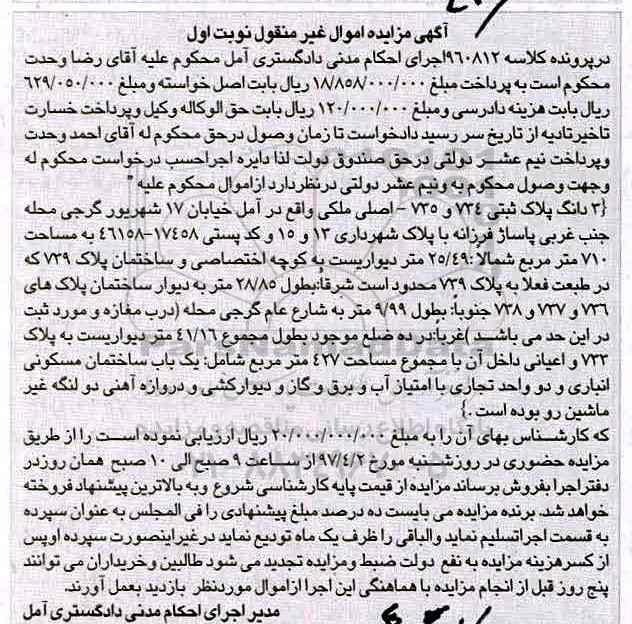 آگهی مزایده اموال غیر منقول نوبت اول
درپرونده کلاسه ۹۶۰۸۱۲اجرای احکام مدنی دادگستری آمل محکوم علیه آقای رضا وحدت
محکوم است به پرداخت مبلغ ۱۸/۸۵۸/۰۰۰/۰۰۰ ریال بابت اصل خواسته ومبلغ ۶۲۹/۰۵۰/۰۰۰
ریال بابت هزینه دادرسی ومبلغ ۱۲۰/۰۰۰/۰۰۰ ریال بابت حق الوکاله وکیل وپرداخت خسارت
تاخیرتادیه از تاریخ سر رسید دادخواست تا زمان وصول درحق محکوم له آقای احمد وحدت
وپرداخت نیم عشر دولتی درحق صندوق دولت لذا دایره اجراحسب درخواست محکوم له
وجهت وصول محکوم به ونیم عشر دولتی درنظردارد ازاموال محکوم علیه "
{۳ دانگ پلاک ثبتی ۷۳۴ و ۷۳۵ - اصلی ملکی واقع در آمل خیابان ۱۷ شهریور گرجی محله
جنب غربی پاساژ فرزانه با پلاک شهرداری ۱۳ و ۱۵ و کد پستی ۱۷۴۵۸-۴۶۱۵۸ به مساحت
۷۱۰ متر مربع شمالاً :۲۵/۴۹ متر دیواریست به کوچه اختصاصی و ساختمان پلاک ۷۳۹ که
در طبعت فعلا به پلاک ۷۳۹ محدود است شرقاً:بطول ۲۸/۸۵ متر به دیوار ساختمان پلاک های
۷۳۶ و ۷۳۷ و ۷۳۸ جنوباً: بطول ۹/۹۹ متر به شارع عام گرجی محله (درب مغازه و مورد ثبت
در این حد می باشد )غرباً:در ده ضلع موجود بطول مجموع ۴۱/۱۶ متر دیواریست به پلاک
۷۳۳ و اعیانی داخل آن با مجموع مساحت ۴۲۷ متر مربع شامل: یک باب ساختمان مسکونی
انباری و دو واحد تجاری با امتیاز آب و برق و گاز و دیوارکشی و دروازه آهنی دو لنگه غیر
ماشین رو بوده است .}
که کارشناس بهای آن را به مبلغ ۲۰/۰۰۰/۰۰۰/۰۰۰ ریال ارزیابی نموده است را از طریق
مزایده حضوری در روزشنبه مورخ ۹۷/۴/۲ از ساعت ۹ صبح الی ۱۰ صبح همان روزدر
دفتراجرا بفروش برساند مزایده از قیمت پایه کارشناسی شروع وبه بالاترین پیشنهاد فروخته
خواهد شد. برنده مزایده می بایست ده درصد مبلغ پیشنهادی را فی المجلس به عنوان سپرده
به قسمت اجراتسلیم نماید والباقی را ظرف یک ماه تودیع نماید درغیراینصورت سپرده اوپس
از کسرهزینه مزایده به نفع دولت ضبط ومزایده تجدید می شود طالبین وخریداران می توانند
پنج روز قبل از انجام مزایده با هماهنگی این اجرا ازاموال موردنظر بازدید بعمل آورند.
مدیر اجرای احکام مدنی دادگستری آمل